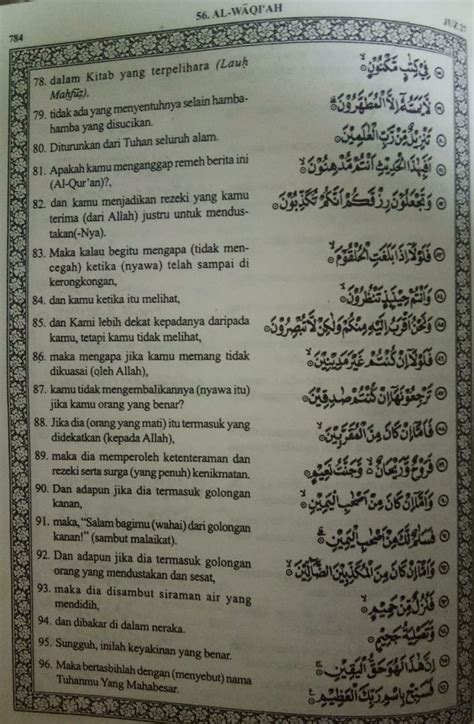 784
56. AL-WĀQI'AH
JUZ 27
78. dalam Kitab yang terpelihara (Lauḥ
Maḥfūẓ),
79. tidak ada yang menyentuhnya selain hamba-
hamba yang disucikan.
80. Diturunkan dari Tuhan seluruh alam.
81. Apakah kamu menganggap remeh berita ini
(Al-Qur'an)?,
82. dan kamu menjadikan rezeki yang kamu
terima (dari Allah) justru untuk mendus-
takan(-Nya).
83. Maka kalau begitu mengapa (tidak men-
cegah) ketika (nyawa) telah sampai di
kerongkongan,
84. dan kamu ketika itu melihat,
85. dan Kami lebih dekat kepadanya daripada
kamu, tetapi kamu tidak melihat,
86. maka mengapa jika kamu memang tidak
dikuasai (oleh Allah),
87. kamu tidak mengembalikannya (nyawa itu)
jika kamu orang yang benar?
88. Jika dia (orang yang mati) itu termasuk yang
didekatkan (kepada Allah),
89. maka dia memperoleh ketenteraman dan
rezeki serta surga (yang penuh) kenikmatan.
90. Dan adapun jika dia termasuk golongan
kanan,
91. maka, "Salam bagimu (wahai) dari golongan
kanan!" (sambut malaikat).
92. Dan adapun jika dia termasuk golongan
orang yang mendustakan dan sesat,
93. maka dia disambut siraman air yang
mendidih,
94. dan dibakar di dalam neraka.
95. Sungguh, inilah keyakinan yang benar.
96. Maka bertasbihlah dengan (menyebut) nama
Tuhanmu Yang Mahabesar.
فِيْ كِتٰبٍ مَّكْنُوْنٍۙ
لَّا يَمَسُّهٗٓ اِلَّا الْمُطَهَّرُوْنَۗ
تَنْزِيْلٌ مِّنْ رَّبِّ الْعٰلَمِيْنَ
اَفَبِهٰذَا الْحَدِيْثِ اَنْتُمْ مُّدْهِنُوْنَۙ
وَتَجْعَلُوْنَ رِزْقَكُمْ اَنَّكُمْ تُكَذِّبُوْنَ
فَلَوْلَآ اِذَا بَلَغَتِ الْحُلْقُوْمَۙ
وَاَنْتُمْ حِيْنَىِٕذٍ تَنْظُرُوْنَۙ
وَنَحْنُ اَقْرَبُ اِلَيْهِ مِنْكُمْ وَلٰكِنْ لَّا تُبْصِرُوْنَ
فَلَوْلَآ اِنْ كُنْتُمْ غَيْرَ مَدِيْنِيْنَۙ
تَرْجِعُوْنَهَآ اِنْ كُنْتُمْ صٰدِقِيْنَ
فَاَمَّآ اِنْ كَانَ مِنَ الْمُقَرَّبِيْنَۙ
فَرَوْحٌ وَّرَيْحَانٌ ەۙ وَّجَنَّتُ نَعِيْمٍ
وَاَمَّآ اِنْ كَانَ مِنْ اَصْحٰبِ الْيَمِيْنِۙ
فَسَلٰمٌ لَّكَ مِنْ اَصْحٰبِ الْيَمِيْنِۗ
وَاَمَّآ اِنْ كَانَ مِنَ الْمُكَذِّبِيْنَ الضَّاۤلِّيْنَۙ
فَنُزُلٌ مِّنْ حَمِيْمٍۙ
وَّتَصْلِيَةُ جَحِيْمٍ
اِنَّ هٰذَا لَهُوَ حَقُّ الْيَقِيْنِۚ
فَسَبِّحْ بِاسْمِ رَبِّكَ الْعَظِيْمِ